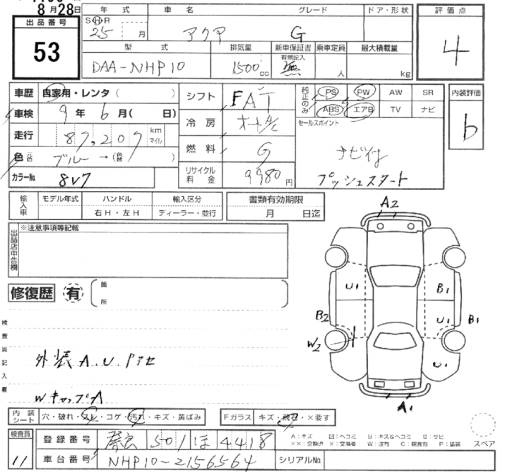 8月28日
出品番号
53
年式 車名 グレード ドア・形状
S H R
25 月 アクア G
評価点
4
型式 排気量 新車保証書 有無記入 乗車定員 最大積載量
DAA-NHP10 1500cc 無 人 kg
車歴 自家用・レンタ( )
車検 9年6月( 日)
走行 87,207 km マイル
色 ブルー→(替)
カラーNo. 8V7
シフト FAT
冷房 オートA/C
燃料 G
リサイクル料金 9980円
純正のみ PS PW AW SR
ABS エアB TV ナビ
セールスポイント
ナビ付
プッシュスタート
内装評価
b
輸入車 モデル年式 ハンドル 輸入区分
右H・左H ディーラー・並行
書類有効期限
月 日迄
※注意事項等記載
修復歴 有 箇所
外装A.U.
WキャップA
A2
U1 B1
B2 U1 U1 B1
W2
A1
内装シート 穴・破れ・スレ・コゲ・汚れ・キズ・黄ばみ
Fガラス キズ・飛石・×要す
検査員
11
登録番号 501 ほ 4418
車台番号 NHP10-2156564
シリアルNo.
スペア